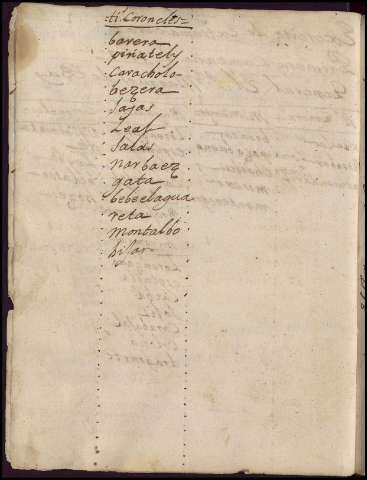 tt. Coroneles=
barera
piñately
Caracholo
bezera
sajas
Leal
salas
narbaez
gata
bebeelagua
reta
montalbo
hilar